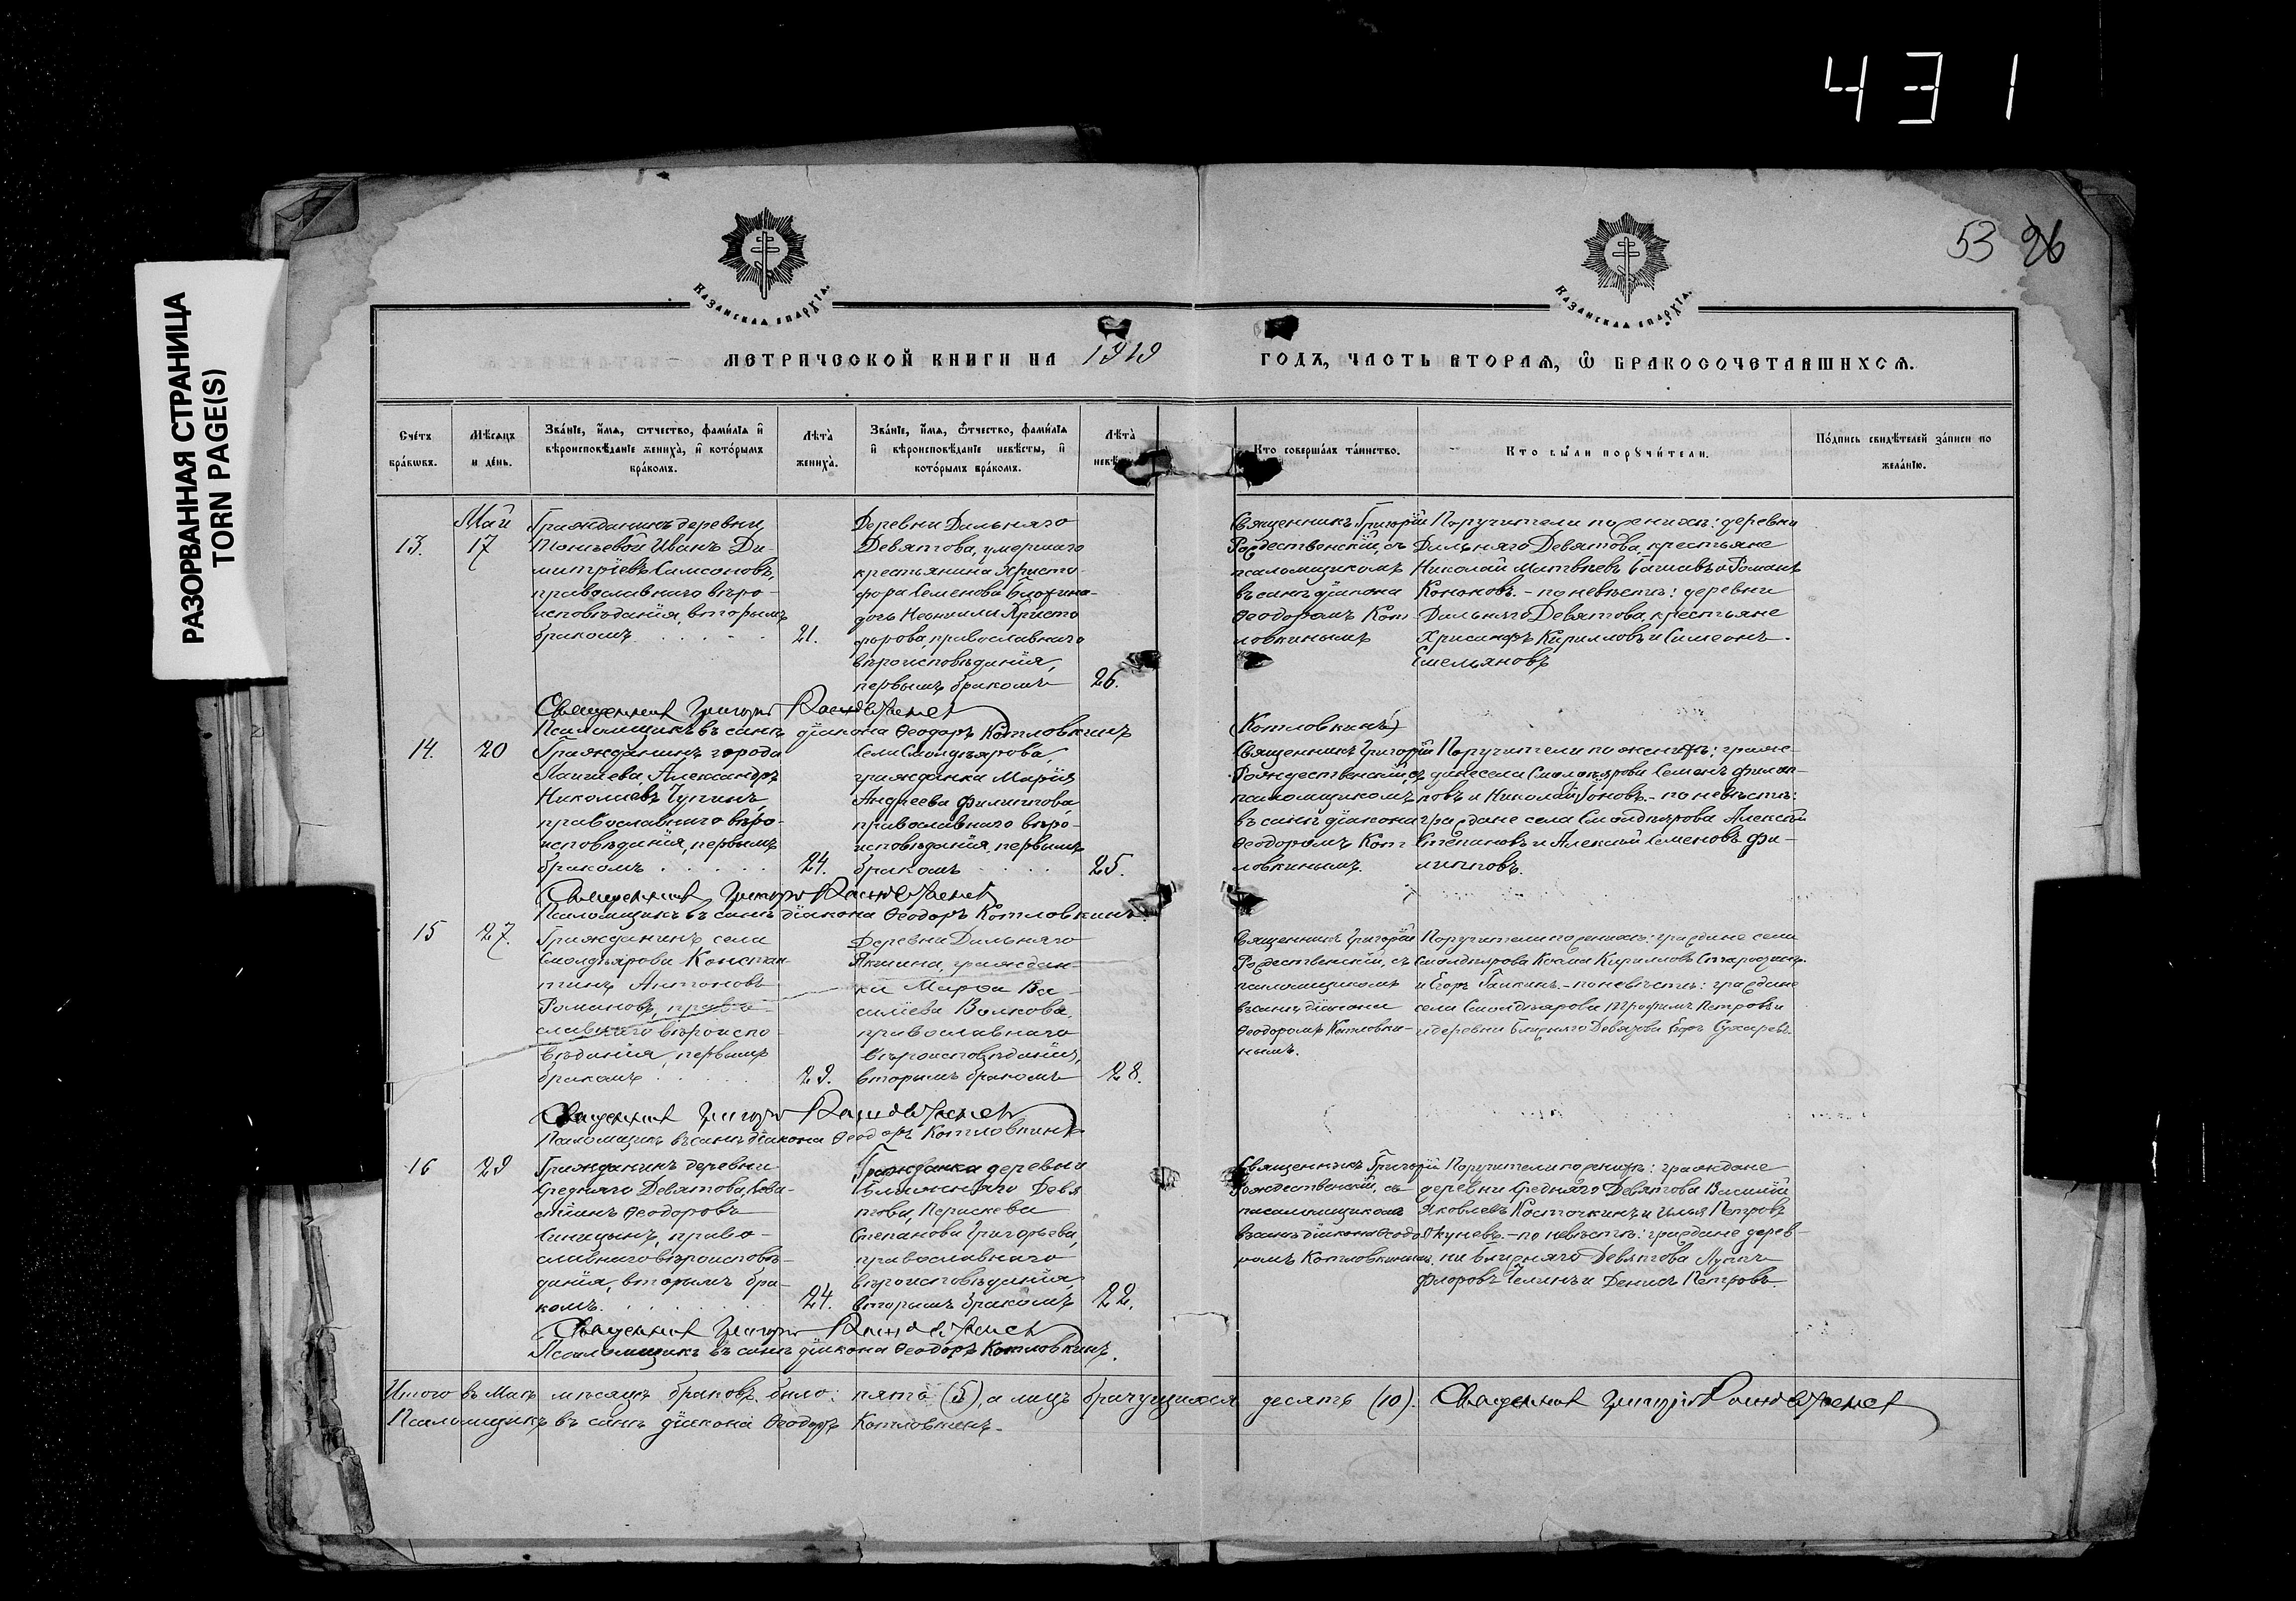 431
РАЗОРВАННАЯ СТРАНИЦА
TORN PAGE(S)
53 96
КАЗАНСКАЯ ЕПАРХІЯ.
КАЗАНСКАЯ ЕПАРХІЯ.
МЕТРИЧЕСКОЙ КНИГИ НА 1919 ГОДЪ, ЧАСТЬ ВТОРАЯ, Ѿ БРАКОСОЧЕТАВШИХСѦ.
Счетъ браковъ.
Мѣсяцъ и день.
Званіе, имя, отчество, фамилія и
вѣроисповѣданіе жениха, и которымъ
бракомъ.
Лѣта
жениха.
Званіе, имя, отчество, фамилія
и вѣроисповѣданіе невѣсты, и
которымъ бракомъ.
Лѣта
Кто совершалъ таинство.
Кто были поручители.
Подпись свидѣтелей записи по
желанію.
13.
Май
17
Гражданинъ деревни
Иванъ Ди-
митріевъ Самсоновъ,
православнаго вѣро-
исповѣданія, вторымъ
бракомъ
21.
Деревни Дальняго
Девятова, умершаго
крестьянина Христо-
фора Семенова
дочь Неонила Христо
форова, православнаго
вѣроисповѣданія,
первымъ бракомъ
26.
Священникъ Григорій
Рождественскій, съ
псаломщикомъ
въ санѣ діакона
Ѳеодоромъ Кот-
ловкинымъ
(Котловкинъ)
Поручители по женихѣ: деревни
Дальняго Девятова, крестьяне
Николай Матвѣевъ и Романъ
Кононовъ. - по невѣстѣ: деревни
Дальняго Девятова, крестьяне
Хрисанфъ Кирилловъ и Симеонъ
Емельяновъ
Священникъ Григорій Рождественскій
Псаломщикъ въ санѣ діакона Ѳеодоръ Котловкинъ
14.
20
Гражданинъ города
Лаишева Александръ
Николаевъ Чупинъ,
православнаго вѣро-
исповѣданія, первымъ
бракомъ
24.
Села Смолдеярова,
гражданка Марія
Андреева Филиппова,
православнаго вѣро-
исповѣданія, первымъ
бракомъ
25.
Священникъ Григорій
Рождественскій, съ
псаломщикомъ
въ санѣ діакона
Ѳеодоромъ Кот-
ловкинымъ.
Поручители по женихѣ: граж-
дане села Смолдеярова Семенъ Филип-
повъ и Николай - по невѣстѣ:
граждане села Смолдеярова Алексѣй
Степановъ и Алексѣй Семеновъ Фи-
липповъ.
Священникъ Григорій Рождественскій
Псаломщикъ въ санѣ діакона Ѳеодоръ Котловкинъ.
15
27.
Гражданинъ села
Смолдеярова Констан-
тинъ Антоновъ
Романовъ, право-
славнаго вѣроиспо-
вѣданія, первымъ
бракомъ
29.
Деревни Дальняго
Якшина, граждан-
ка Марфа Ва-
силіева Волкова,
православнаго
вѣроисповѣданія,
вторымъ бракомъ
28.
Священникъ Григорій
Рождественскій, съ
псаломщикомъ
въ санѣ діакона
Ѳеодоромъ Котловки-
нымъ.
Поручители по женихѣ: граждане села
Смолдеярова Косма Кирилловъ
и Егоръ Галкинъ. - по невѣстѣ: граждане
села Смолдеярова Трофимъ Петровъ и
и деревни Ближняго Девятова Егоръ Сухаревъ.
Священникъ Григорій Рождественскій
Псаломщикъ въ санѣ діакона Ѳеодоръ Котловкинъ
16
29
Гражданинъ деревни
Средняго Девятова, Сева-
стіанъ Ѳеодоровъ
Синицынъ, право-
славнаго вѣроисповѣ-
данія, вторымъ бра-
комъ.
24.
Гражданка деревни
Ближняго Девя
това, Параскева
Степанова Григорьева,
православнаго
вѣроисповѣданія,
вторымъ бракомъ
22.
Священникъ Григорій
Рождественскій, съ
псаломщикомъ
въ санѣ діакона Ѳеодо-
ромъ Котловкинымъ.
Поручители по женихѣ: граждане
деревни Средняго Девятова Василій
Яковлевъ Косточкинъ и Илья Петровъ
Окуневъ. - по невѣстѣ: граждане дерев-
ни Ближняго Девятова Лупъ
Флоровъ и Денисъ Петровъ
Священникъ Григорій Рождественскій
Псаломщикъ въ санѣ діакона Ѳеодоръ Котловкинъ.
Итого въ Маѣ мѣсяцѣ браковъ было: пять (5), а лицъ брачущихся десять (10). Священникъ Григорій Рождественскій
Псаломщикъ въ санѣ діакона Ѳеодоръ Котловкинъ.